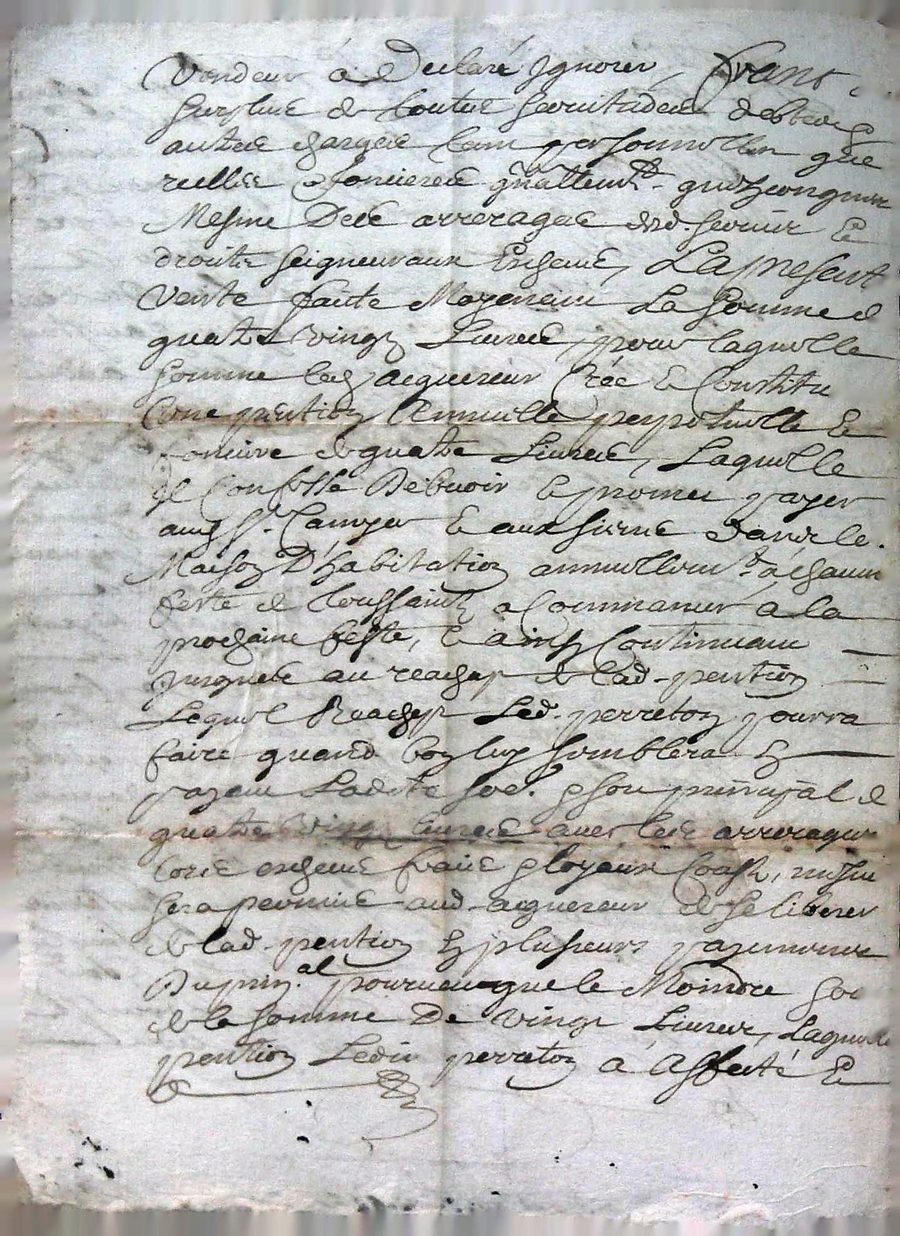 Vendeur a declaré Ignorer, franc
surplus de toutes servitudes debtes &
autres charges tam personnelles que
reelles & foncieres quelconques
Mesme Des arrerages desd. servis &
droits seigneuriaux Escheus, La presente
Vente faite Moyenant La somme de
quatre vingt Livres, pour laquelle
somme led. acquereur Crée & Constitue
une pention Annuelle perpetuelle &
fonciere de quatre Livres, Laquelle
Il Confesse Debvoir & promet payer
aud. Sr. & aux siens dans le.
Maison D'habitation annuellemt. a chacune
feste de Toussaint a Commancer a la
prochaine feste, & ainsy Continuant
jusques au reachapt de lad. pention
Lequel Reachapt Led. perreton pourra
faire quand bon luy semblera En
payant Ladite son principal de
quatre vingt Livres avec les arrerages
lors escheus frais loyaux mesme
sera permis aud. acquereur de se liberer
de lad. pention En plusieurs payements
Du prin.al pourveu que le Moindre soit
de la somme De vingt Livres, Laquelle
pention Ledit perreton a Affecté &